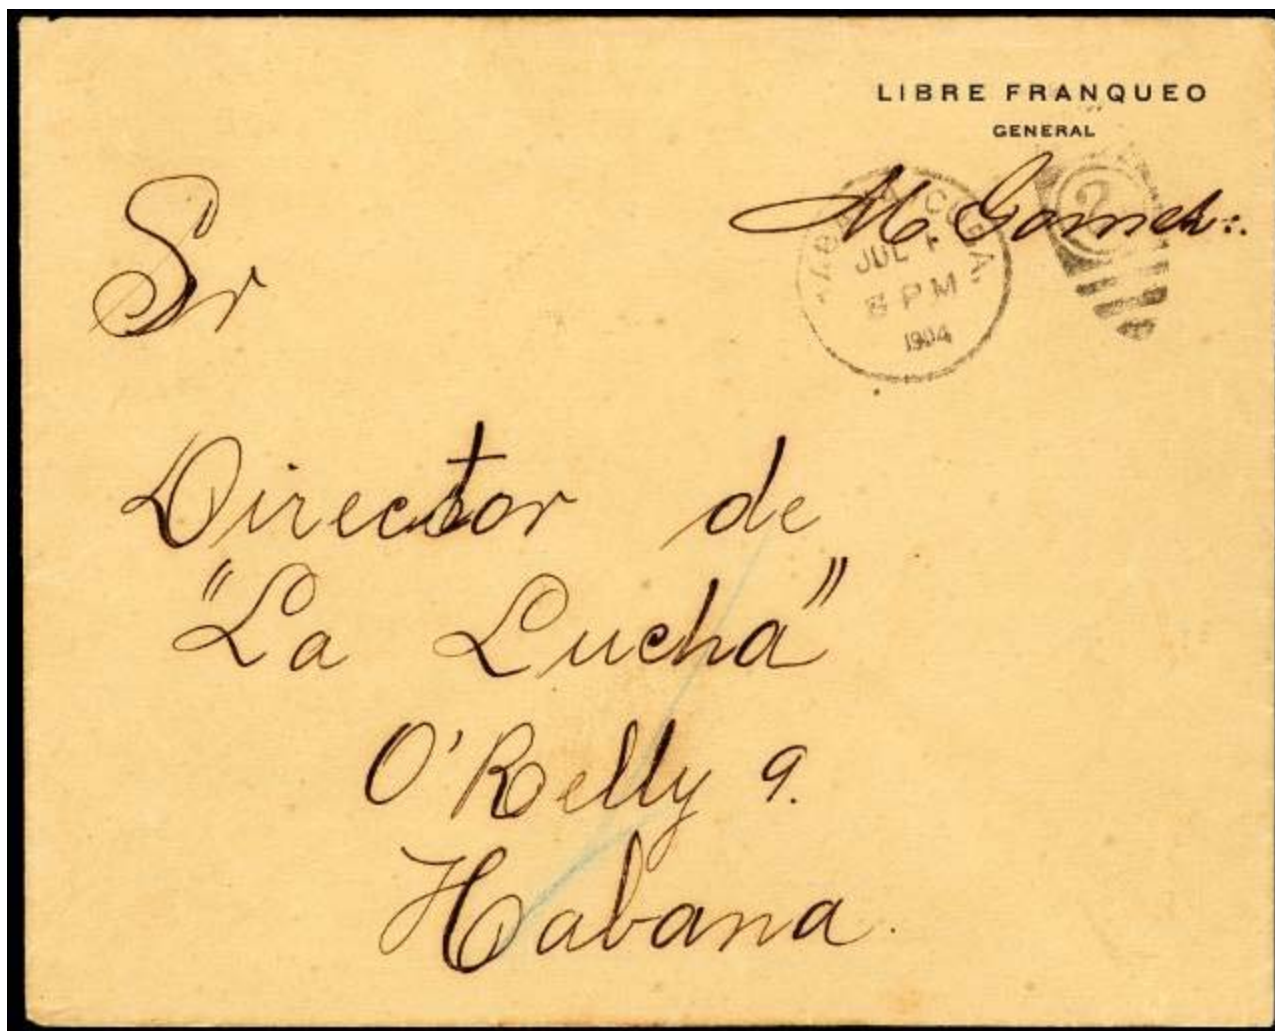 LIBRE FRANQUEO
GENERAL
M. Gomez
CUBA.
JUL 1
PM
1904
2
Sr
Director de
"La Lucha"
O'Relly 9.
Habana.